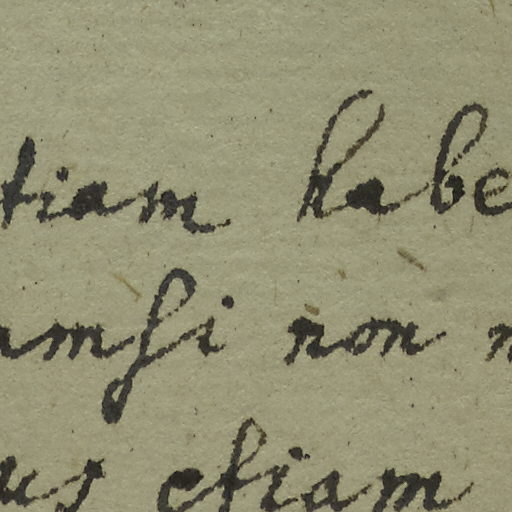 tiam habe
amsi non n
us etiam